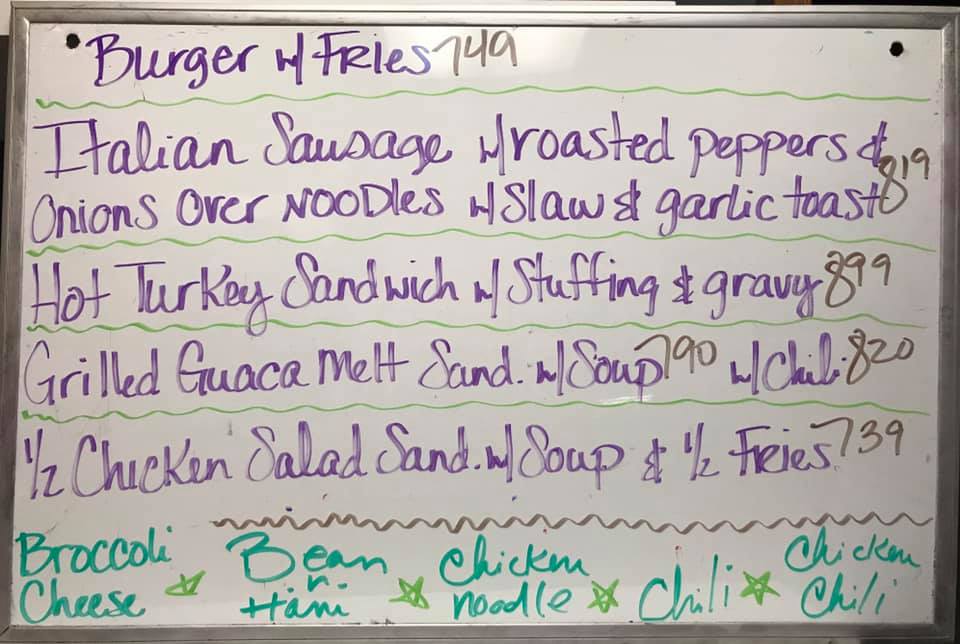 Burger w/ Fries 749
Italian Sausage w/ roasted peppers &
Onions Over Noodles w/ Slaw & garlic toast 819
Hot Turkey Sandwich w/ Stuffing & gravy 899
Grilled Guaca Melt Sand. w/ Soup 790 w/ Chili 820
1/2 Chicken Salad Sand. w/ Soup & 1/2 Fries 739
Broccoli Cheese
Bean n Ham
Chicken noodle
Chili
Chicken Chili